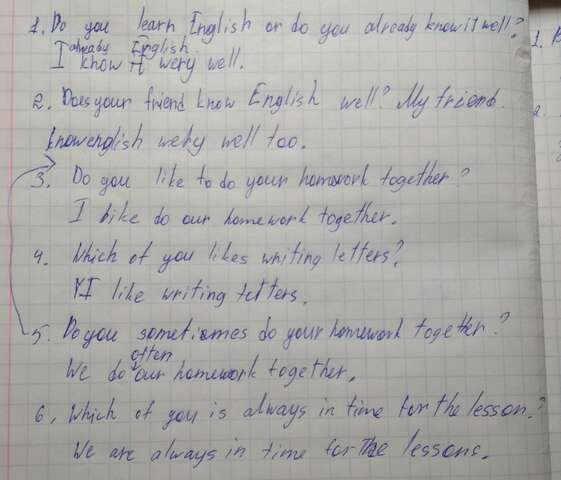 1. Do you learn English or do you already know it well?
already English.
I know it wery well.
2. Does your friend know English well? My friend
know english wery well too.
3. Do you like to do your homework together?
I like do our homework together.
4. Which of you likes writing letters?
I like writing letters.
5. Do you sometimes do your homework together?
often
We do our homework together.
6. Which of you is always in time for the lesson?
We are always in time for the lessons.
1.
2.